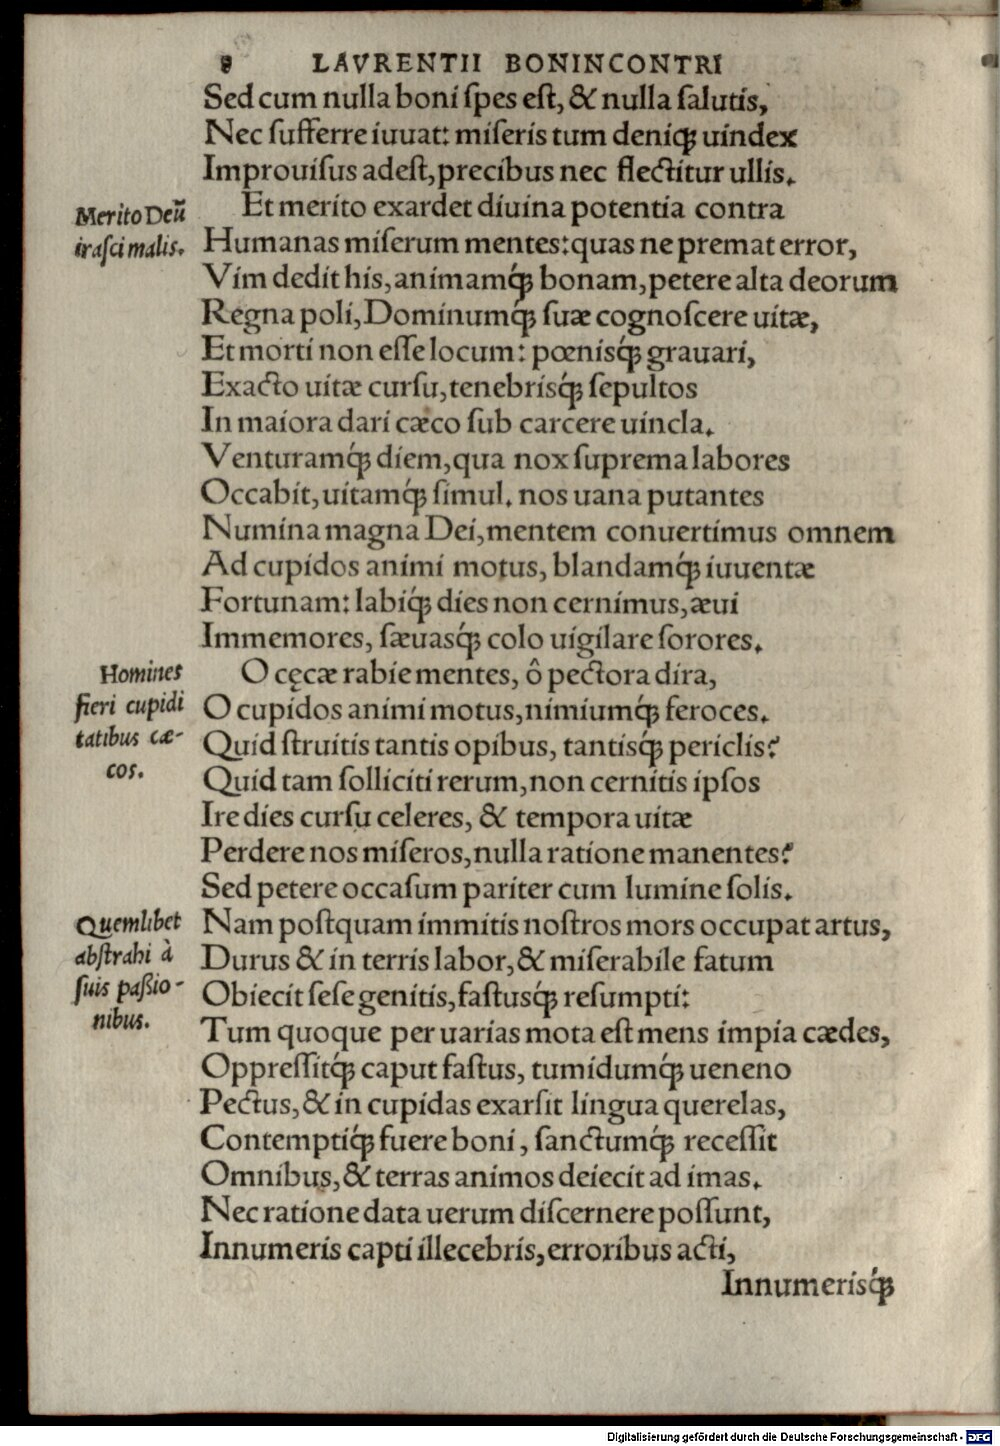 8 LAVRENTII BONINCONTRI
Sed cum nulla boni ſpes eſt, & nulla ſalutis,
Nec ſufferre iuuat: miſeris tum deniq́; uindex
Improuiſus adeſt, precibus nec flectitur ullis.
Merito Deũ
iraſci malis.
Et merito exardet diuina potentia contra
Humanas miſerum mentes: quas ne premat error,
Vim dedit his, animamq́; bonam, petere alta deorum
Regna poli, Dominumq́; ſuæ cognoſcere uitæ,
Et morti non eſſe locum: pœnisq́; grauari,
Exacto uitæ curſu, tenebrisq́; ſepultos
In maiora dari cæco ſub carcere uincla.
Venturamq́; diem, qua nox ſuprema labores
Occabit, uitamq́; ſimul. nos uana putantes
Numina magna Dei, mentem conuertimus omnem
Ad cupidos animi motus, blandamq́; iuuentæ
Fortunam: labiq́; dies non cernimus, æui
Immemores, ſæuasq́; colo uigilare ſorores.
Homines
fieri cupidi
tatibus cæ-
cos.
O cęcæ rabie mentes, ô pectora dira,
O cupidos animi motus, nimiumq́; feroces.
Quid ſtruitis tantis opibus, tantisq́; periclis?
Quid tam ſolliciti rerum, non cernitis ipſos
Ire dies curſu celeres, & tempora uitæ
Perdere nos miſeros, nulla ratione manentes?
Sed petere occaſum pariter cum lumine ſolis.
Quemlibet
abſtrahi à
ſuis paßio-
nibus.
Nam poſtquam immitis noſtros mors occupat artus,
Durus & in terris labor, & miſerabile fatum
Obiecit ſeſe genitis, faſtusq́; reſumpti:
Tum quoque per uarias mota eſt mens impia cædes,
Oppreſſitq́; caput faſtus, tumidumq́; ueneno
Pectus, & in cupidas exarſit lingua querelas,
Contemptiq́; fuere boni, ſanctumq́; receſſit
Omnibus, & terras animos deiecit ad imas.
Nec ratione data uerum diſcernere poſſunt,
Innumeris capti illecebris, erroribus acti,
Innumerisq́;
Digitalisierung gefördert durch die Deutsche Forschungsgemeinschaft - DFG